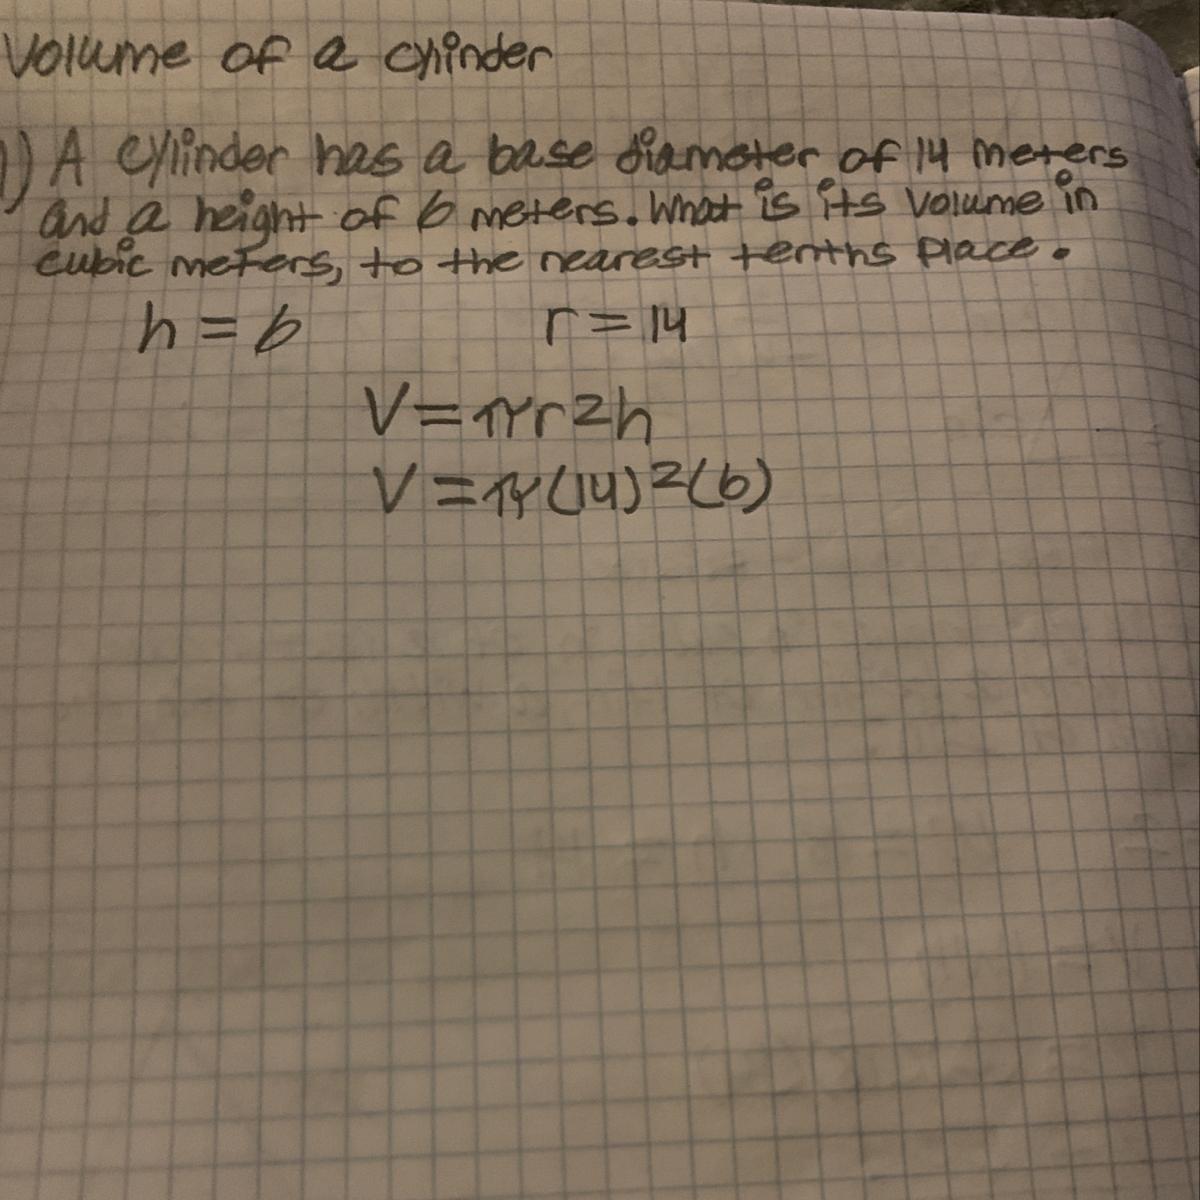 Volume of a cylinder
1) A cylinder has a base diameter of 14 meters
and a height of 6 meters. What is its volume in
cubic meters, to the nearest tenths place.
h = 6 r = 14
V = πr2h
V = π(14)²(6)